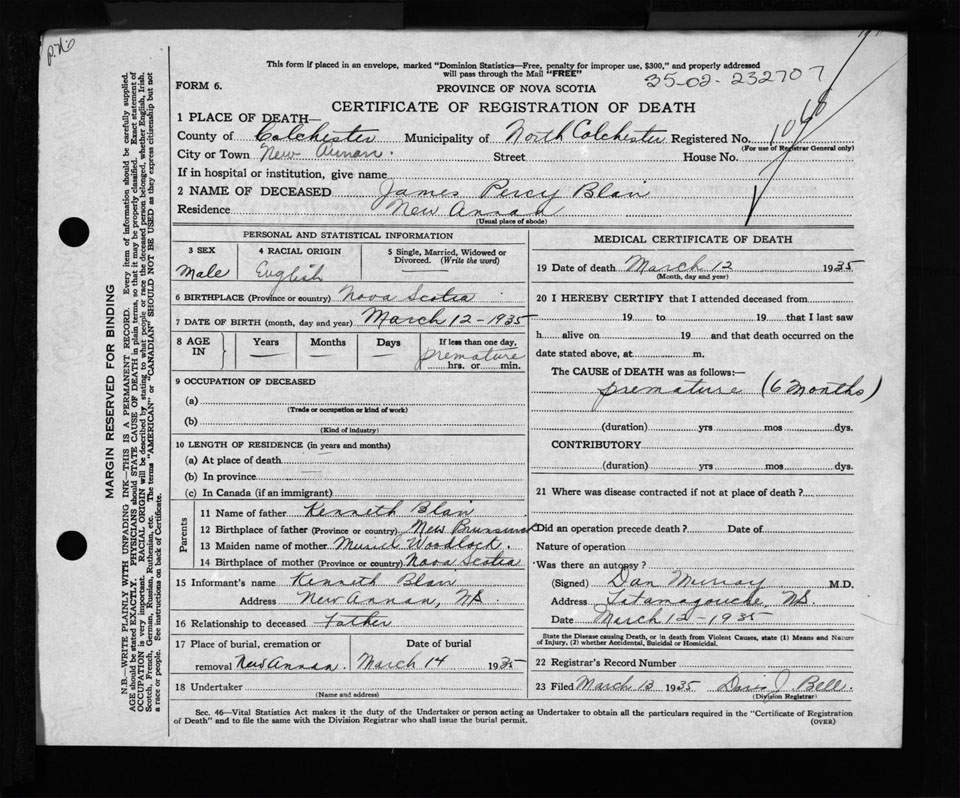 P.N.S
This form if placed in an envelope, marked "Dominion Statistics—Free, penalty for improper use, $300," and properly addressed
will pass through the Mail "FREE"
35-02-232707
FORM 6.
PROVINCE OF NOVA SCOTIA
CERTIFICATE OF REGISTRATION OF DEATH
1 PLACE OF DEATH—
County of Colchester Municipality of North Colchester Registered No. 1060
(For use of Registrar General only)
City or Town New Annan. Street House No.
If in hospital or institution, give name
2 NAME OF DECEASED James Percy Blair
Residence New Annan
(Usual place of abode)
PERSONAL AND STATISTICAL INFORMATION
3 SEX 4 RACIAL ORIGIN 5 Single, Married, Widowed or
Divorced. (Write the word)
Male English
6 BIRTHPLACE (Province or country) Nova Scotia
7 DATE OF BIRTH (month, day and year) March 12-1935
8 AGE IN Years Months Days If less than one day,
premature
hrs. or min.
9 OCCUPATION OF DECEASED
(a)
(Trade or occupation or kind of work)
(b)
(Kind of industry)
10 LENGTH OF RESIDENCE (in years and months)
(a) At place of death
(b) In province
(c) In Canada (if an immigrant)
Parents
11 Name of father Kenneth Blair
12 Birthplace of father (Province or country) New Brunswick
13 Maiden name of mother Muriel Woodlock.
14 Birthplace of mother (Province or country) Nova Scotia
15 Informant's name Kenneth Blair
Address New Annan, N.S.
16 Relationship to deceased Father
17 Place of burial, cremation or Date of burial
removal New Annan. March 14 1935
18 Undertaker
(Name and address)
MEDICAL CERTIFICATE OF DEATH
19 Date of death March 12 1935
(Month, day and year)
20 I HEREBY CERTIFY that I attended deceased from
19 to 19 that I last saw
h alive on 19 and that death occurred on the
date stated above, at m.
The CAUSE of DEATH was as follows:—
premature (6 Months)
(duration) yrs mos dys.
CONTRIBUTORY
(duration) yrs mos dys.
21 Where was disease contracted if not at place of death?
Did an operation precede death? Date of
Nature of operation
Was there an autopsy?
(Signed) Dan Murray M.D.
Address Tatamagouche, N.S.
Date March 12-1935
State the Disease causing Death, or in death from Violent Causes, state (1) Means and Nature
of Injury, (2) whether Accidental, Suicidal or Homicidal.
22 Registrar's Record Number
23 Filed March 13 1935 J. Bell.
(Division Registrar)
Sec. 46—Vital Statistics Act makes it the duty of the Undertaker or person acting as Undertaker to obtain all the particulars required in the "Certificate of Registration
of Death" and to file the same with the Division Registrar who shall issue the burial permit. (OVER)
MARGIN RESERVED FOR BINDING
N.B.—WRITE PLAINLY WITH UNFADING INK—THIS IS A PERMANENT RECORD. Every item of information should be carefully supplied.
AGE should be stated EXACTLY. PHYSICIANS should STATE CAUSE OF DEATH in plain terms, so that it may be properly classified. Exact statement of
OCCUPATION is very important. RACIAL ORIGIN will be described by stating to what people or race the deceased person belonged, whether English, Irish,
Scotch, French, German, Russian, Ruthenian, etc. The terms "AMERICAN" or "CANADIAN" SHOULD NOT BE USED as they express citizenship but not
a race or people. See instructions on back of Certificate.